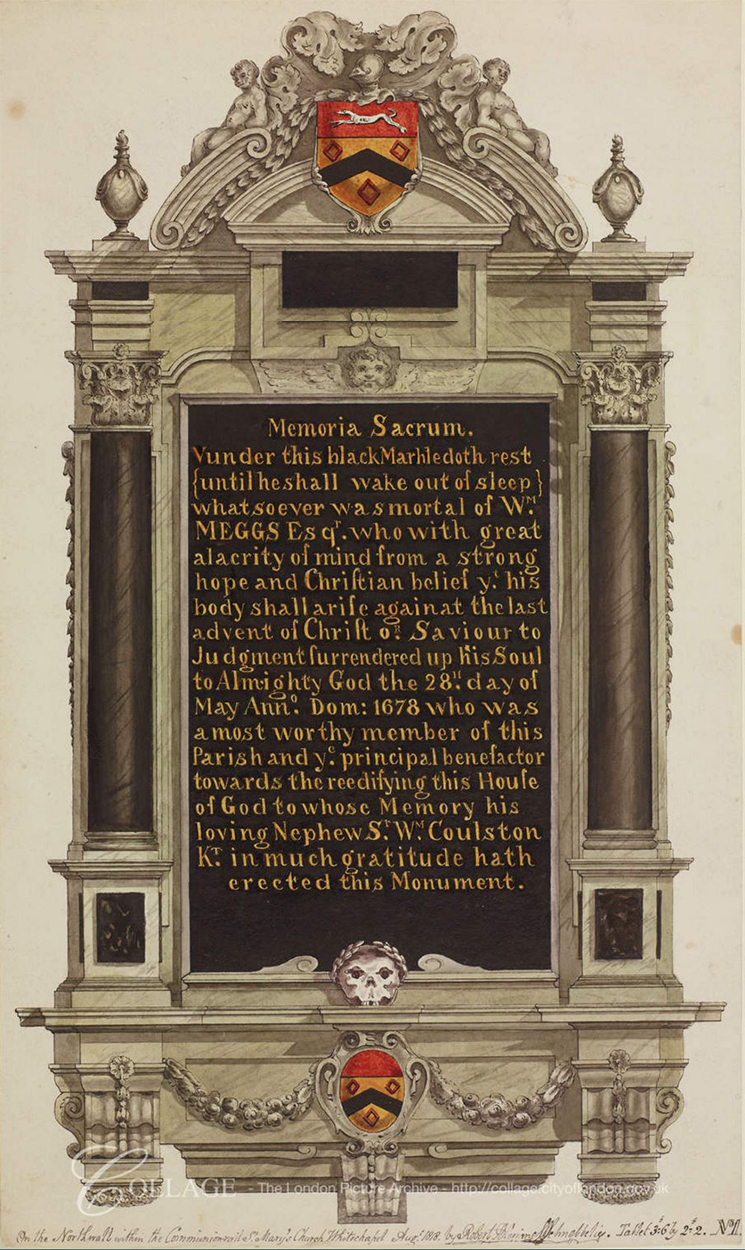 Memoria Sacrum.
Vunder this black Marble doth rest
{until he shall wake out of sleep}
whatsoever was mortal of Wᴹ.
MEGGS Esqʳ. who with great
alacrity of mind from a strong
hope and Chriſtian belief yᵗ. his
body shall ariſe again at the last
advent of Chriſt oᴿ. Saviour to
Judgment ſurrendered up his Soul
to Almighty God the 28ᵗʰ. day of
May Annᵒ. Dom: 1678 who was
a most worthy member of this
Parish and yᵉ. principal benefactor
towards the reedifying this Houſe
of God to whose Memory his
loving Nephew Sᵗ. Wᴹ Coulston
Kᵀ. in much gratitude hath
erected this Monument.
COLLAGE - The London Picture Archive - http://collage.cityoflondon.gov.uk
On the North wall within the Communion rail Sᵗ Mary's Church Whitechapel Augᵗ by Robert Tablet 3.6 by 2.2. Nº1.